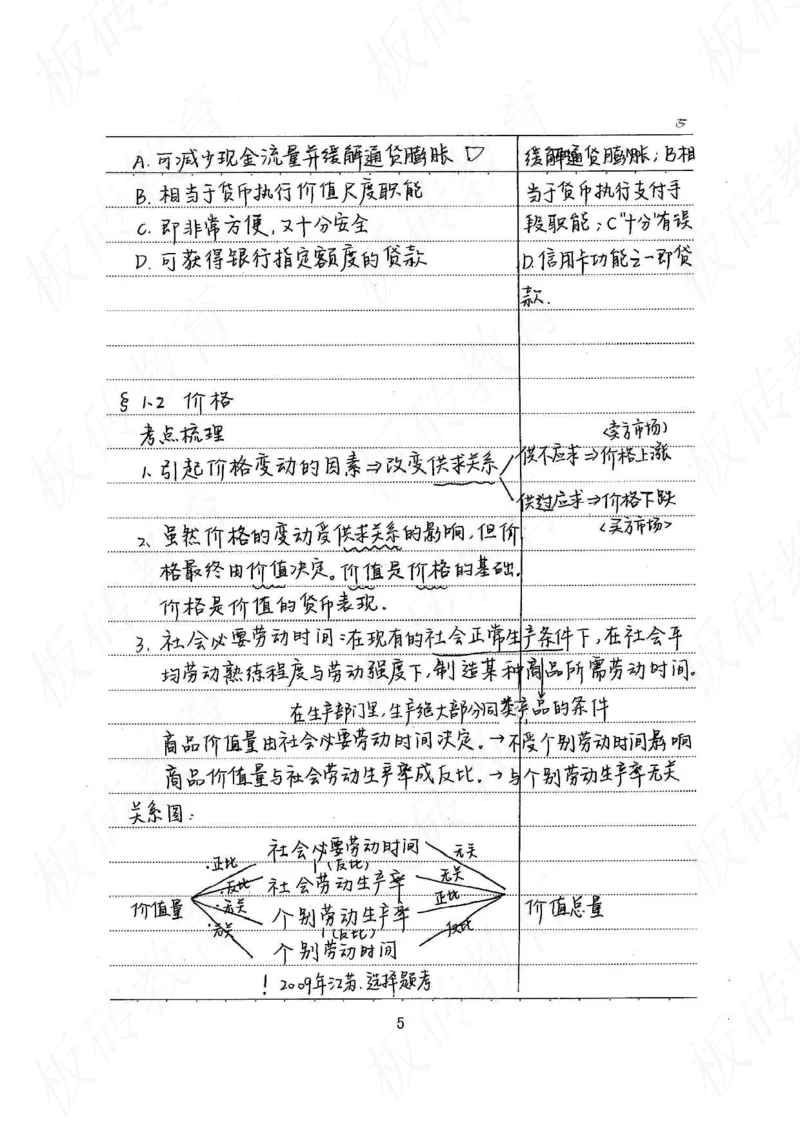 5
A. 可减少现金流量并缓解通货膨胀 D
缓解通货膨胀；B相
B. 相当于货币执行价值尺度职能
当于货币执行支付手
C. 即非常方便,又十分安全
段职能；C"十分"有误
D. 可获得银行指定额度的贷款
D.信用卡功能之一即贷
款.
§ 1.2 价格
考点梳理
(卖方市场)
1. 引起价格变动的因素⇒改变供求关系
供不应求⇒价格上涨
供过应求⇒价格下跌
<买方市场>
2、虽然价格的变动受供求关系的影响,但价
格最终由价值决定。价值是价格的基础.
价格是价值的货币表现.
3. 社会必要劳动时间:在现有的社会正常生产条件下,在社会平
均劳动熟练程度与劳动强度下,制造某种商品所需劳动时间。
在生产部门里,生产绝大部分同类产品的条件
商品价值量由社会必要劳动时间决定。→不受个别劳动时间影响
商品价值量与社会劳动生产率成反比.→与个别劳动生产率无关
关系图:
·正比 社会必要劳动时间 无关
(反比)
·反比 社会劳动生产率 无关
价值量 ·无关 个别劳动生产率 正比 价值总量
(反比)
·无关 个别劳动时间 反比
! 2009年江苏.选择题考
5
板砖教育